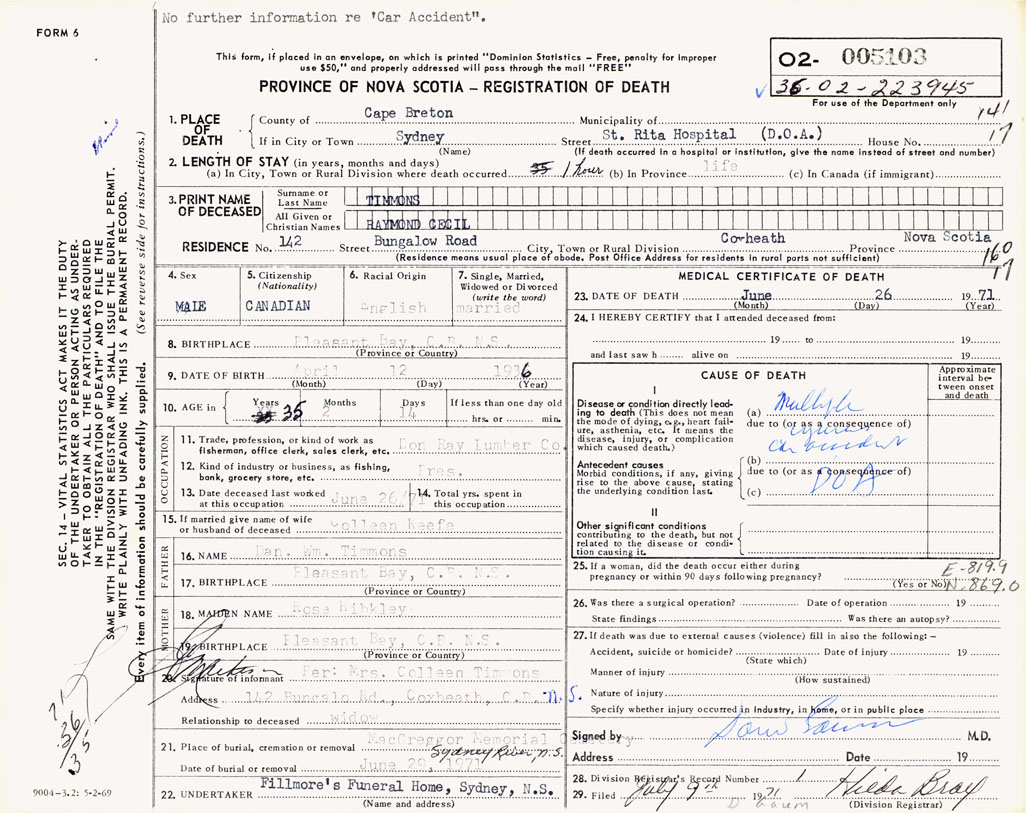 No further information re 'Car Accident".
FORM 6
This form, if placed in an envelope, on which is printed "Dominion Statistics – Free, penalty for improper
use $50," and properly addressed will pass through the mail "FREE"
PROVINCE OF NOVA SCOTIA – REGISTRATION OF DEATH
02- 005103
36-02-223945
For use of the Department only
141
17
1. PLACE OF DEATH
County of Cape Breton Municipality of
If in City or Town Sydney Street St. Rita Hospital (D.O.A.) House No.
(Name) (If death occurred in a hospital or institution, give the name instead of street and number)
2. LENGTH OF STAY (in years, months and days)
(a) In City, Town or Rural Division where death occurred 35 1 hour (b) In Province life (c) In Canada (if immigrant)
3. PRINT NAME OF DECEASED
Surname or Last Name TIMMONS
All Given or Christian Names RAYMOND CECIL
RESIDENCE No. 142 Street Bungalow Road City, Town or Rural Division Coxheath Province Nova Scotia
(Residence means usual place of abode. Post Office Address for residents in rural parts not sufficient)
160
17
4. Sex
MALE
5. Citizenship
(Nationality)
CANADIAN
6. Racial Origin
English
7. Single, Married,
Widowed or Divorced
(write the word)
married
8. BIRTHPLACE Pleasant Bay, C.B. N.S.
(Province or Country)
9. DATE OF BIRTH April 12 1936
(Month) (Day) (Year)
10. AGE in
Years Months Days If less than one day old
35 2 14 hrs. or min.
OCCUPATION
11. Trade, profession, or kind of work as
fisherman, office clerk, sales clerk, etc. Don Ray Lumber Co.
12. Kind of industry or business, as fishing,
bank, grocery store, etc. Pres.
13. Date deceased last worked
at this occupation June 26/71
14. Total yrs. spent in
this occupation
15. If married give name of wife
or husband of deceased Colleen Keefe
FATHER
16. NAME Dan. Wm. Timmons
17. BIRTHPLACE Pleasant Bay, C.B. N.S.
(Province or Country)
MOTHER
18. MAIDEN NAME Rose Hinkley
19. BIRTHPLACE Pleasant Bay, C.B. N.S.
(Province or Country)
20. Signature of informant Per: Mrs. Colleen Timmons
Address 142 Bungalo Rd., Coxheath, C.B. N.S.
Relationship to deceased widow
21. Place of burial, cremation or removal MacGreggor Memorial Cemetery
Sydney River, N.S.
Date of burial or removal June 29, 1971
22. UNDERTAKER Fillmore's Funeral Home, Sydney, N.S.
(Name and address)
MEDICAL CERTIFICATE OF DEATH
23. DATE OF DEATH June 26 1971
(Month) (Day) (Year)
24. I HEREBY CERTIFY that I attended deceased from:
19 to
and last saw h alive on 19
CAUSE OF DEATH
Approximate
interval be-
tween onset
and death
I
Disease or condition directly lead-
ing to death (This does not mean
the mode of dying, e.g., heart fail-
ure, asthenia, etc. It means the
disease, injury, or complication
which caused death.)
(a) Multiple
due to (or as a consequence of)
injuries
Car accident
Antecedent causes
Morbid conditions, if any, giving
rise to the above cause, stating
the underlying condition last.
(b)
due to (or as a consequence of)
DOA
(c)
II
Other significant conditions
contributing to the death, but not
related to the disease or condi-
tion causing it.
25. If a woman, did the death occur either during
pregnancy or within 90 days following pregnancy?
(Yes or No)
E-819.9
N-869.0
26. Was there a surgical operation? Date of operation 19
State findings Was there an autopsy?
27. If death was due to external causes (violence) fill in also the following: –
Accident, suicide or homicide? Date of injury 19
(State which)
Manner of injury
(How sustained)
Nature of injury
Specify whether injury occurred in industry, in home, or in public place
Signed by M.D.
Address Date 19
28. Division Registrar's Record Number 1
29. Filed July 9th 1971 Hilda Bray
(Division Registrar)
SEC. 14 – VITAL STATISTICS ACT MAKES IT THE DUTY
OF THE UNDERTAKER OR PERSON ACTING AS UNDER-
TAKER TO OBTAIN ALL THE PARTICULARS REQUIRED
IN THE "REGISTRATION OF DEATH" AND TO FILE THE
SAME WITH THE DIVISION REGISTRAR WHO SHALL ISSUE THE BURIAL PERMIT.
WRITE PLAINLY WITH UNFADING INK. THIS IS A PERMANENT RECORD.
Every item of information should be carefully supplied. (See reverse side for instructions.)
71
36
35
9004-3.2: 5-2-69